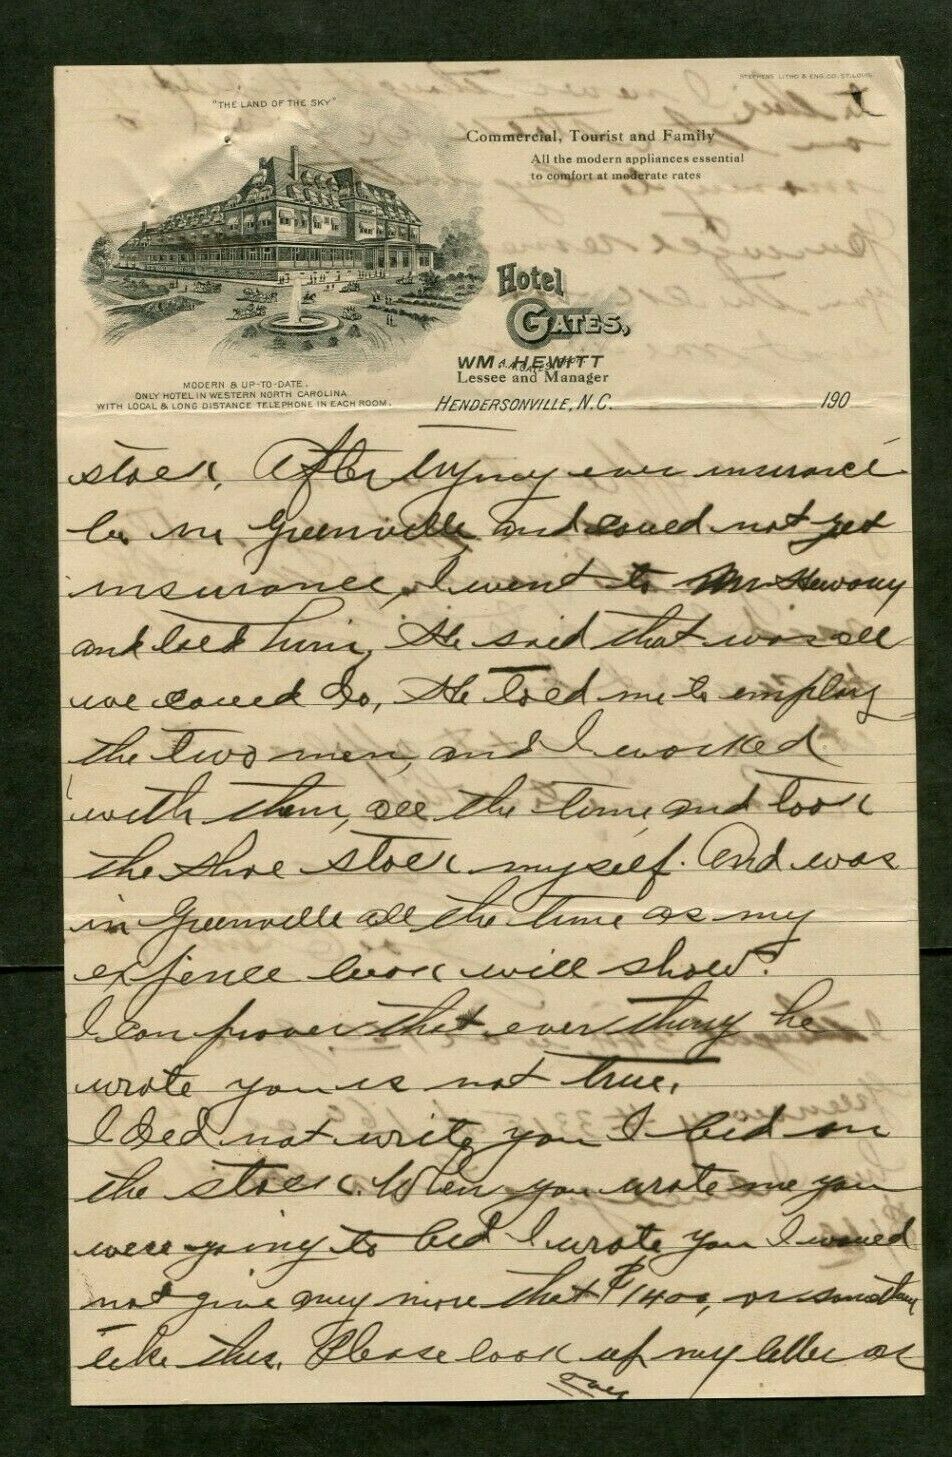 STEPHENS LITHO & ENG. CO. ST. LOUIS
"THE LAND OF THE SKY"
Commercial, Tourist and Family
All the modern appliances essential
to comfort at moderate rates
Hotel
GATES,
WM. HEWITT
Lessee and Manager
MODERN & UP-TO-DATE.
ONLY HOTEL IN WESTERN NORTH CAROLINA
WITH LOCAL & LONG DISTANCE TELEPHONE IN EACH ROOM.
HENDERSONVILLE, N.C. 190
stock. After trying ever insurance
Co in Greenville and could not get
insurance, I went to Mr
and told him, He said that was all
we could do, He told me to employ
the two men, and I worked
with them, all the time, and took
the shoe stock myself. And was
in Greenville all the time as my
expence book will show.
I can prove that every thing he
wrote you is not true.
I did not write you I bid on
the stock. When you wrote me you
were going to bid I wrote you I would
not give any more that $1400, or something
like this. Please look up my letter as